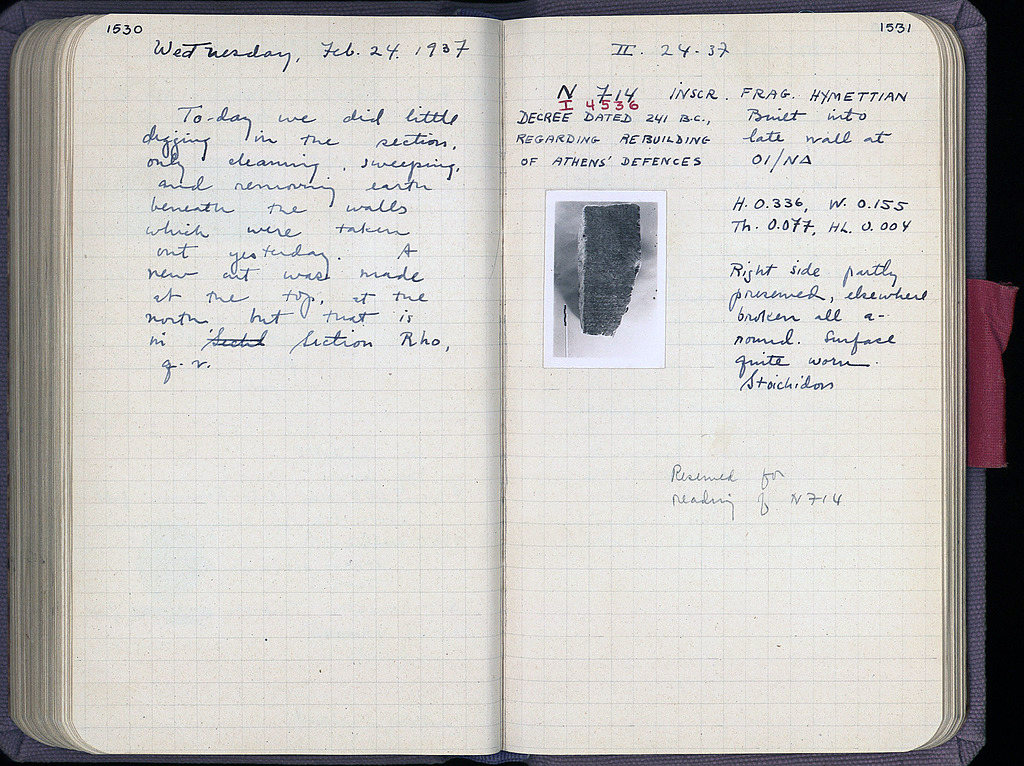 1530
Wednesday, Feb. 24. 1937
To-day we did little
digging in the section,
only cleaning, sweeping,
and removing earth
beneath the walls
which were taken
out yesterday. A
new cut was made
at the top, at the
north, but that is
in Section Rho,
q.v.
1531
II. 24-37
N 714 INSCR. FRAG. HYMETTIAN
I 4536
DECREE DATED 241 B.C., Built into
REGARDING REBUILDING late wall at
OF ATHENS' DEFENCES 01/ΝΔ
H. 0.336, W. 0.155
Th. 0.077, HL. 0.004
Right side partly
preserved, elsewhere
broken all a-
round. Surface
quite worn.
Stoichidon
Reserved for
reading of N 714